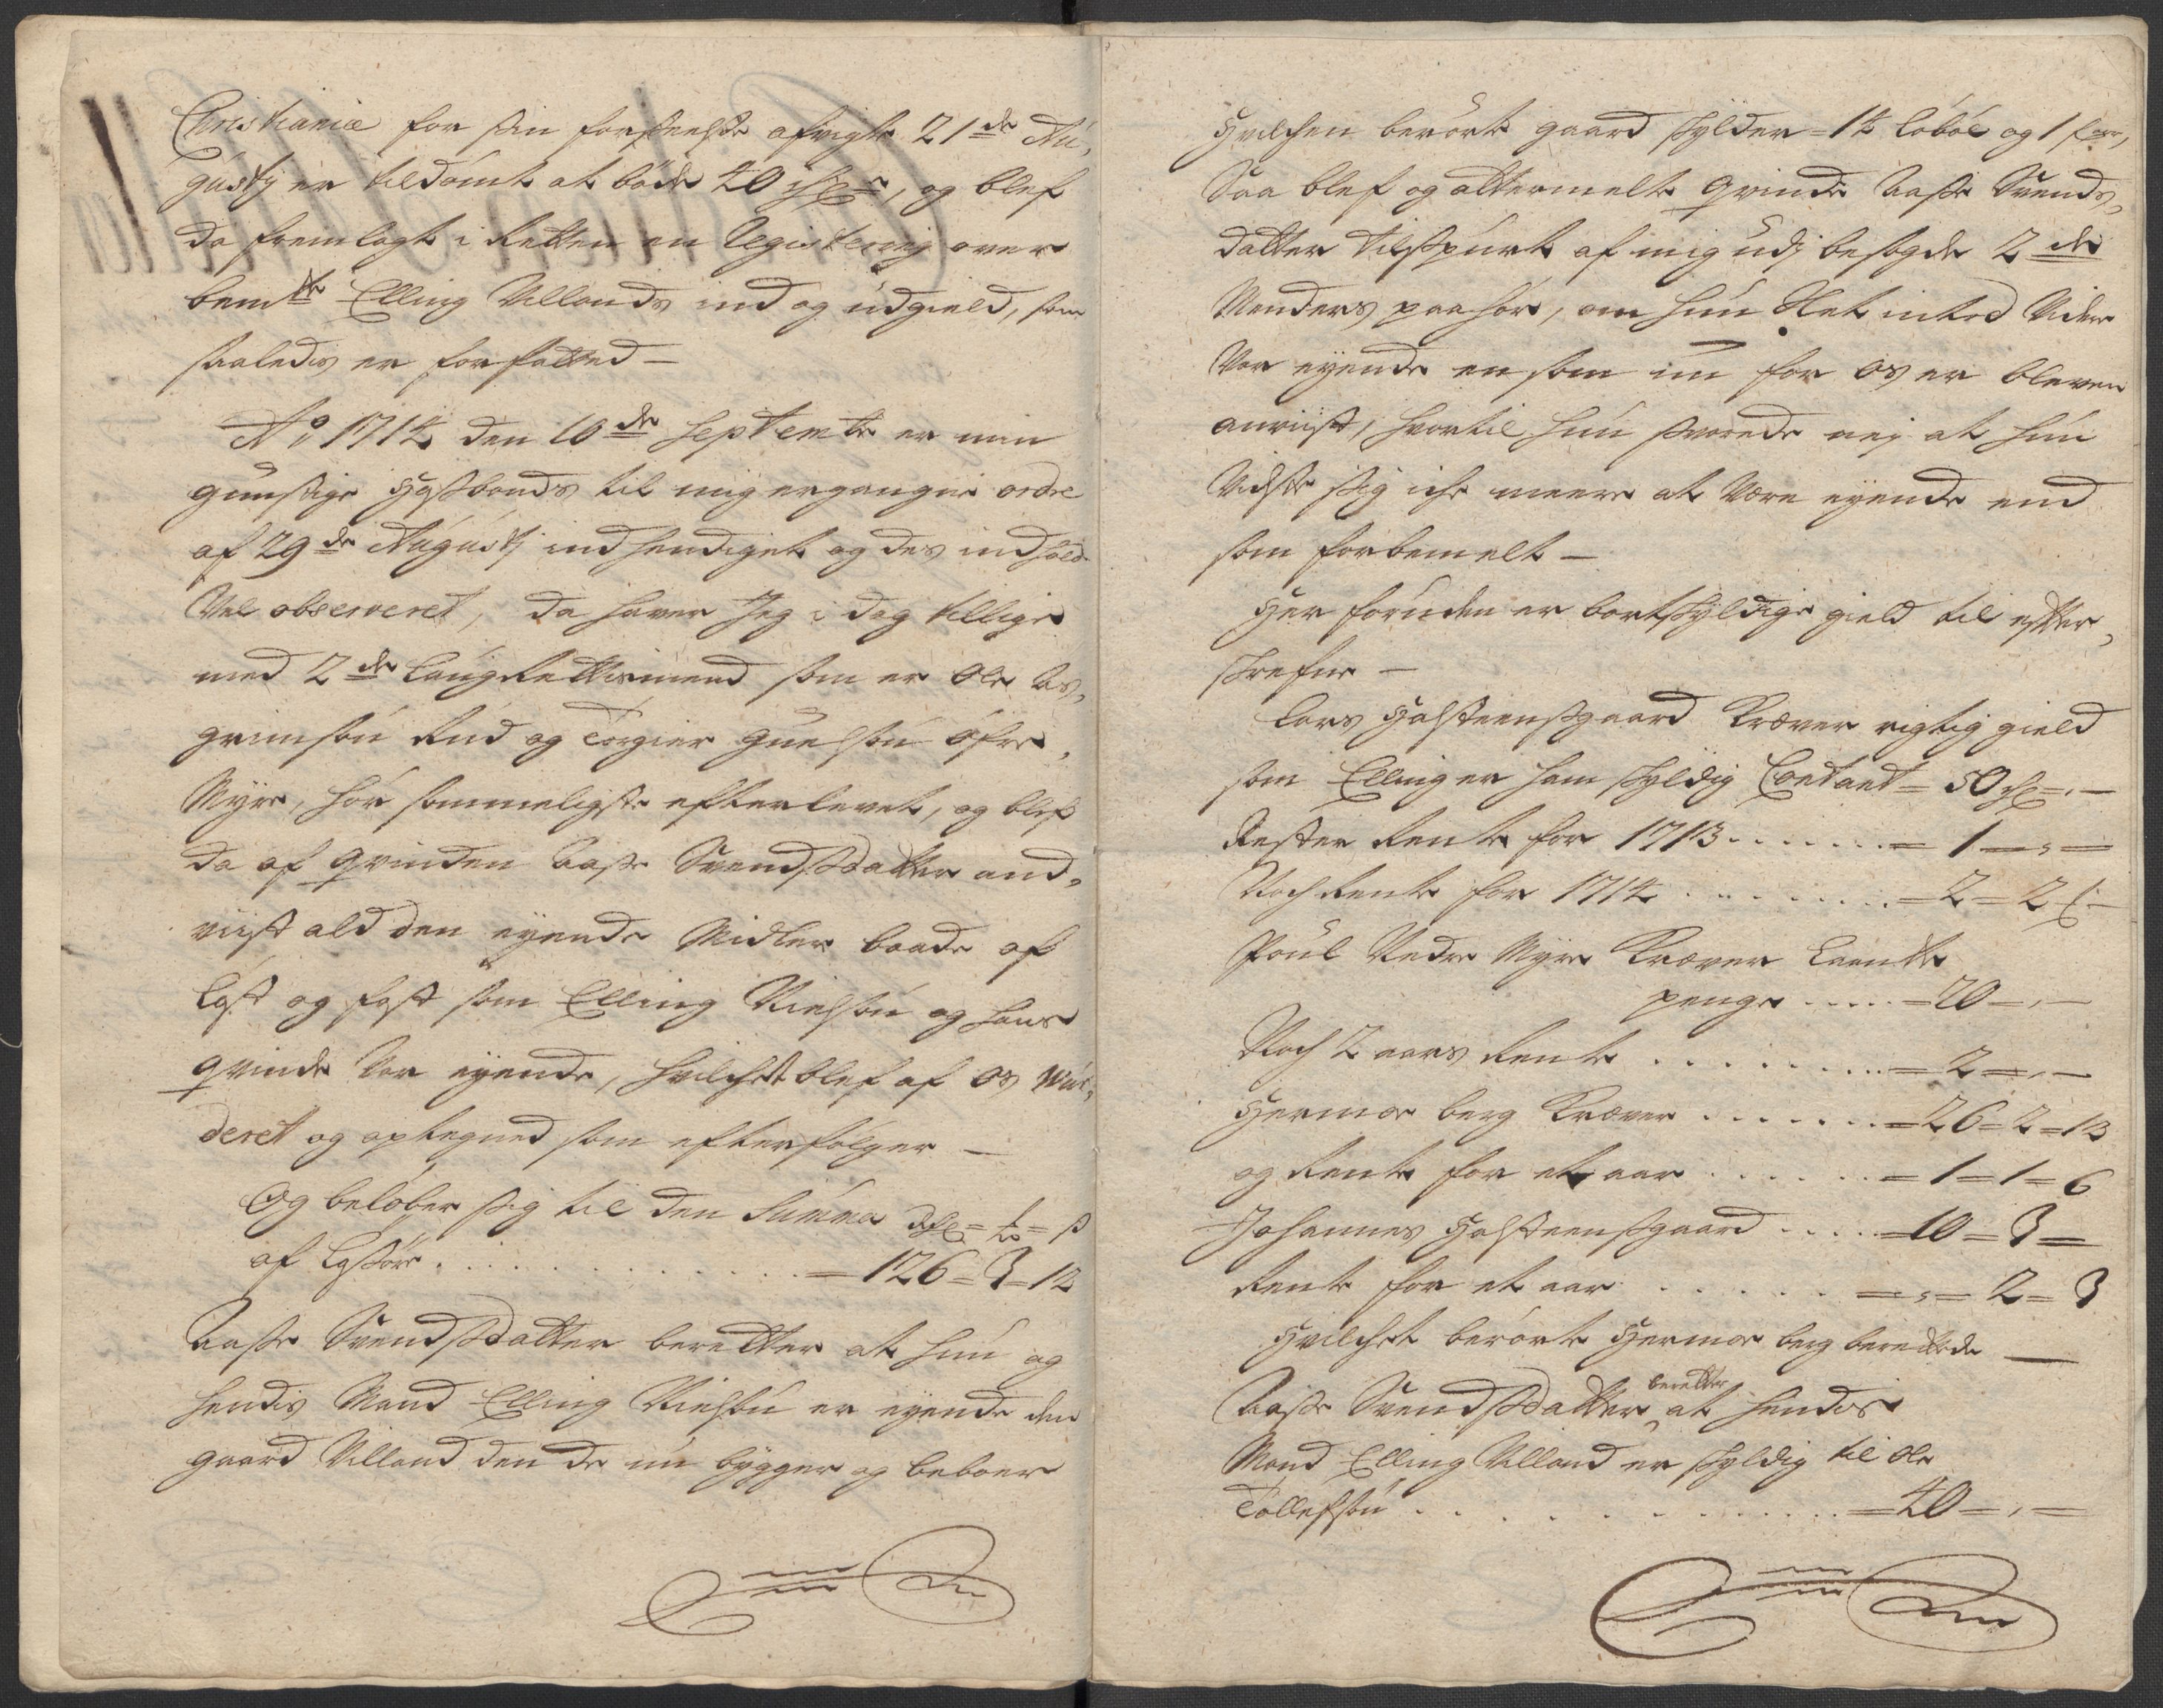 Christiania for sin forseelse afvigte 21de Au,
gusty er tildømt at bøde 40 rdr, og blef
da fremlagt i Retten en Registering over
bemte Elling Villands ind og udgield, som
saaledis er forfatted –
Ao 1714 den 10de Septembr er min
gunstige Hosbonds til mig ergangne ordre
af 29de Augusti indhendiget og des indhold
Vel observeret, da haver Jeg i dag tillige
med 2de Laugrettismend som er Ole As,
grimsøn Rud og Torgier Guulsøn Øfre,
Myre, hør sommeligste efterlevet, og blef
da af Qvinden Aase Svendsdatter and,
viist ald den eyende Midler baade af
Løst og fast som Elling Nielsøn og hans
qvinde Var eyende, hvilchet blef af os Wur,
deret og optegned som efterfølger –
Og beløber sig til den Summa Rdr = ort = s
af Løsøre . . . . . . = 126 = 3 = 12
Aase Svendsdatter beretter at hun og
hendis Mand Elling Nielsøn er eyende den
gaard Villand den de nu bygger og beboer
Hvilchen berørte gaard schylder = 14 Løbøl og 1
Saa blef og altermelte Qvinde Aase Svends,
datter tilspurt af mig udj besagde 2de
Menders paahør, om hun Slet inted Videre
Var eyende en som nu for os er bleven
anviist, hvortil hun svarede nej at hun
Vidste sig iche meere at Være eyende end
som forbemelt –
Her foruden er bortschyldige gield til efter,
schrefne –
Lars Halsteensgaard Kræver rigtig gield
som Elling er ham schyldig Contant = 50 rdr = , –
Rester Rente for 1713 . . . . . = 1 – , –
Noch Rente for 1714 . . . . . = 2 = 2
Poul Nedre Myre Kræver Laante
penge . . . . = 20 – , –
Noch 2 aars Rente . . . . . = 2 – , –
Hermoe berg Kræver . . . . . = 26 = 2 = 13
og Rente for et aar . . . . . = 1 = 1 = 6
Johannes Halsteensgaard . . . . = 10 = 3 –
Rente for et aar . . . . . = , = 2 = 3
Hvilchet berørte Hermoe berg berettede –
Aase Svendsdatter beretter at hendis
Mand Elling Villand er schyldig til Ole
Tollefsøn . . . . . = 40 – , –